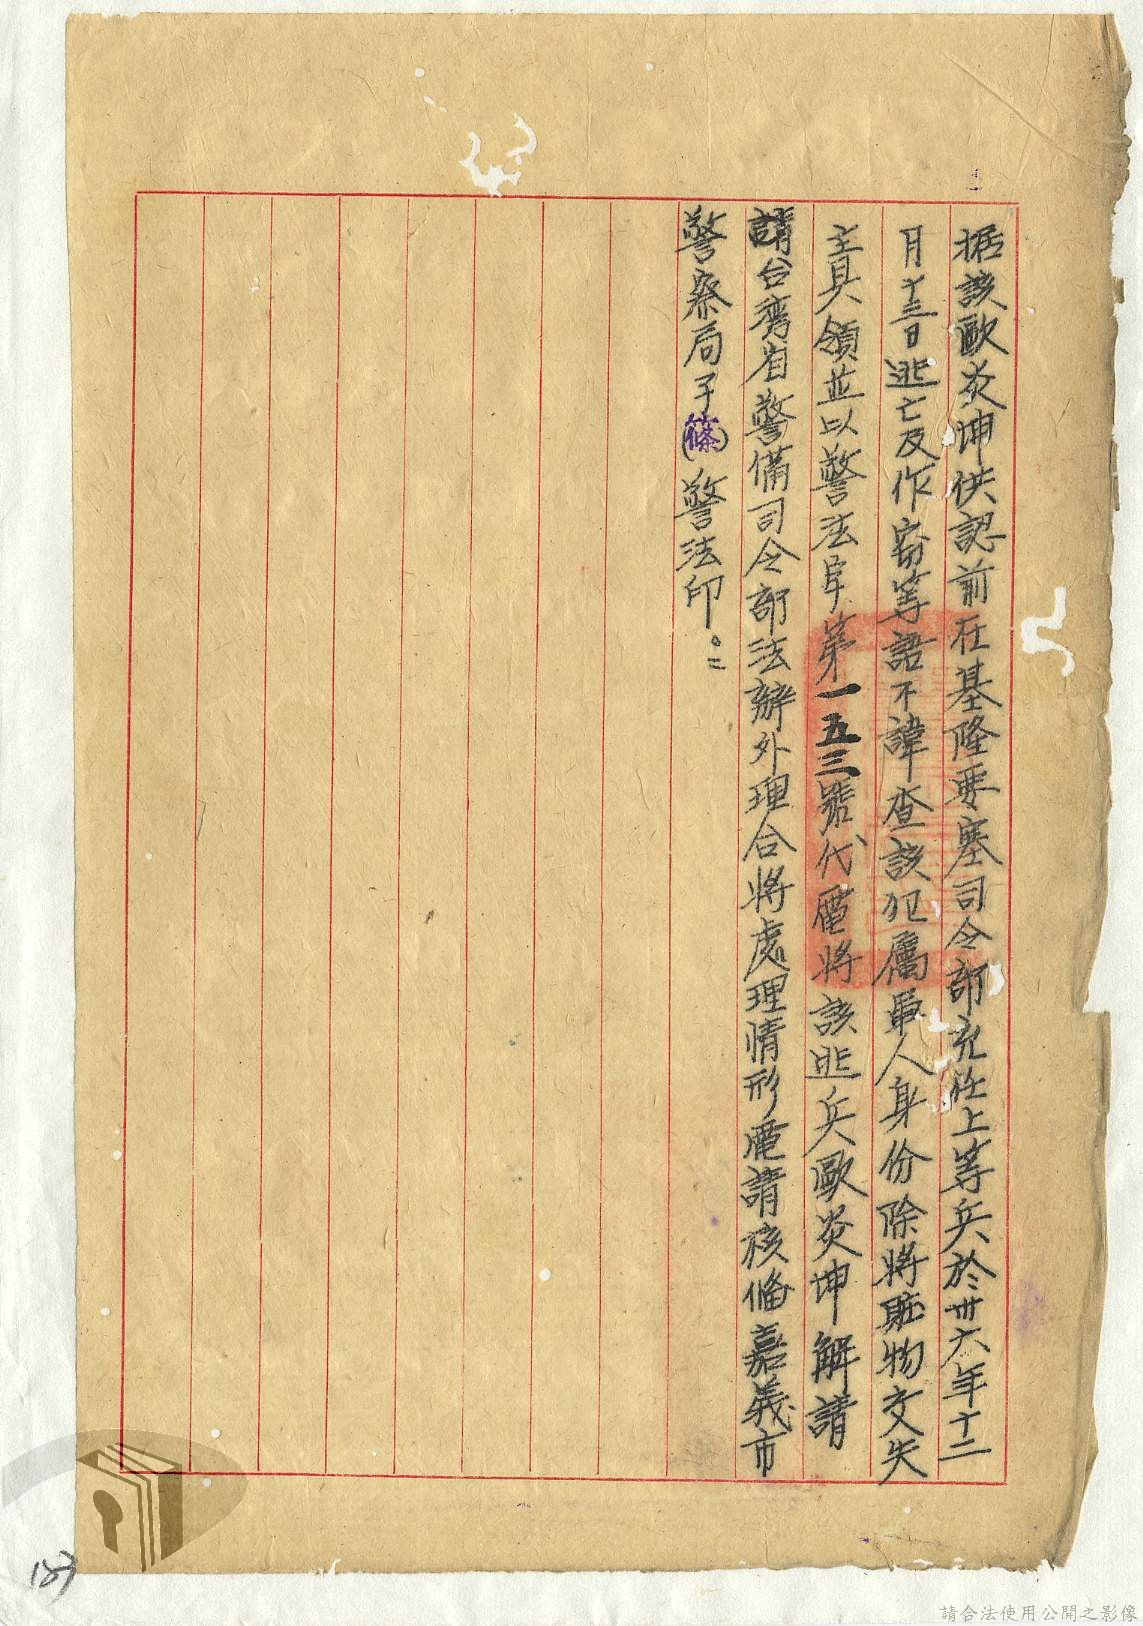 据該歐炎坤供認前在基隆要塞司令部充任上等兵於卅六年十二
月十三日逃亡及作窃等語不諱查該犯屬軍人身份除將賍物交失
主具領並以警法字第一五三號代電將該逃兵歐炎坤解請
請台灣省警備司令部法辦外理合將處理情形電請核俻嘉義市
警察局子(篠)警法印。
183
請合法使用公開之影像